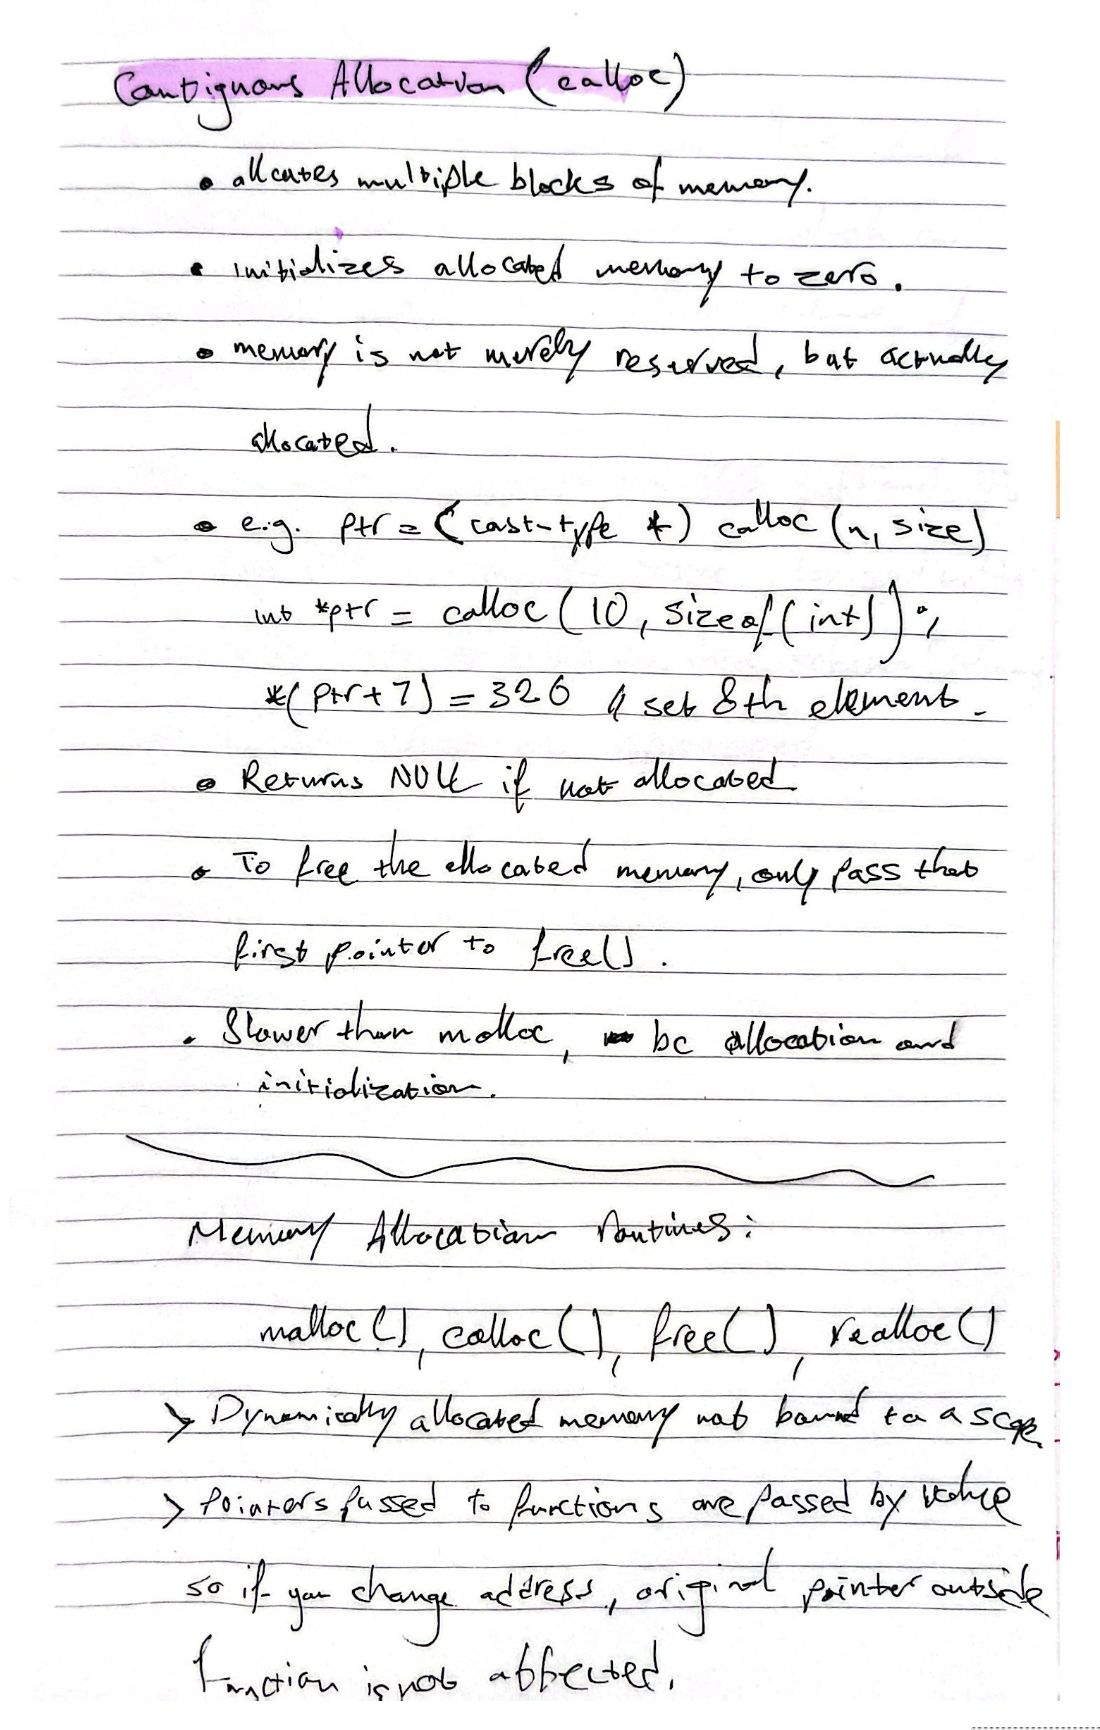 Contiguous Allocation (calloc)
• allcates multiple blocks of memory.
• initializes allocated memory to zero.
• memory is not merely reserved, but actually
allocated.
• e.g. ptr = (cast-type *) calloc (n, size)
int *ptr = calloc (10, sizeof(int));
*(ptr+7) = 326 // set 8th element.
• Returns NULL if not allocated
• To free the allocated memory, only pass that
first pointer to free().
• Slower than malloc, bc allocation and
initialization.
Memory Allocation Routines:
malloc(), calloc(), free(), realloc()
> Dynamically allocated memory not bound to a scope.
> Pointers passed to functions are passed by value
so if you change address, original pointer outside
function is not affected.